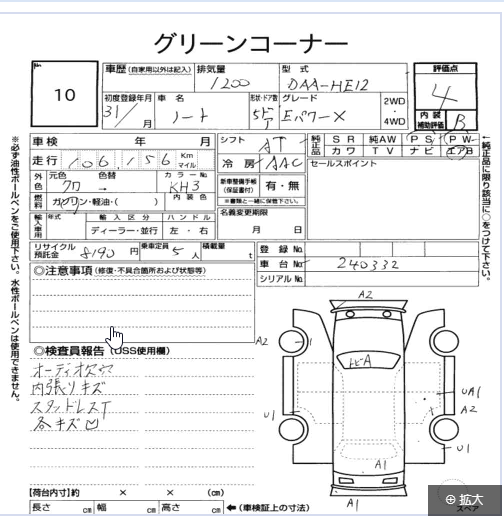 グリーンコーナー
No.
10
車歴 (自家用以外は記入)
排気量
1200
型式
DAA-HE12
評価点
4
内装
補助評価
B
初度登録年月
31/ 月
車名
ノート
形状・ドア数
5ドア
グレード
Eパワー X
2WD
4WD
車検 年 月
走行 106,156 Km マイル
シフト AT
冷房 AAC
純正品
SR 純AW PS PW
カワ TV ナビ エアB
セールスポイント
外色
元色 色替 カラーNo.
クロ → KH3
内装色
燃料
ガソリン・軽油・( )
新車整備手帳
(保証書付)
有・無
※書類と一緒に保管下さい。
名義変更期限
月 日
輸入車
年式 輸入区分 ハンドル
ディーラー・並行 左・右
リサイクル預託金 8190 円
乗車定員 5 人
積載量 t
登録No.
車台No. 240332
シリアルNo.
◎注意事項 (修復・不具合箇所および状態等)
◎検査員報告 (USS使用欄)
オーディオ欠ヤ
内張りキズ
スタッドレスT
各キズ凹
A2
A2
トビA
UA1
A2
U1
U1
A1
A1
【荷台内寸】約 × × (cm)
長さ cm 幅 cm 高さ cm ←(車検証上の寸法)
スペア
拡大
※必ず油性ボールペンをご使用下さい。水性ボールペンは使用できません。
←純正品に限り該当に○をつけて下さい。